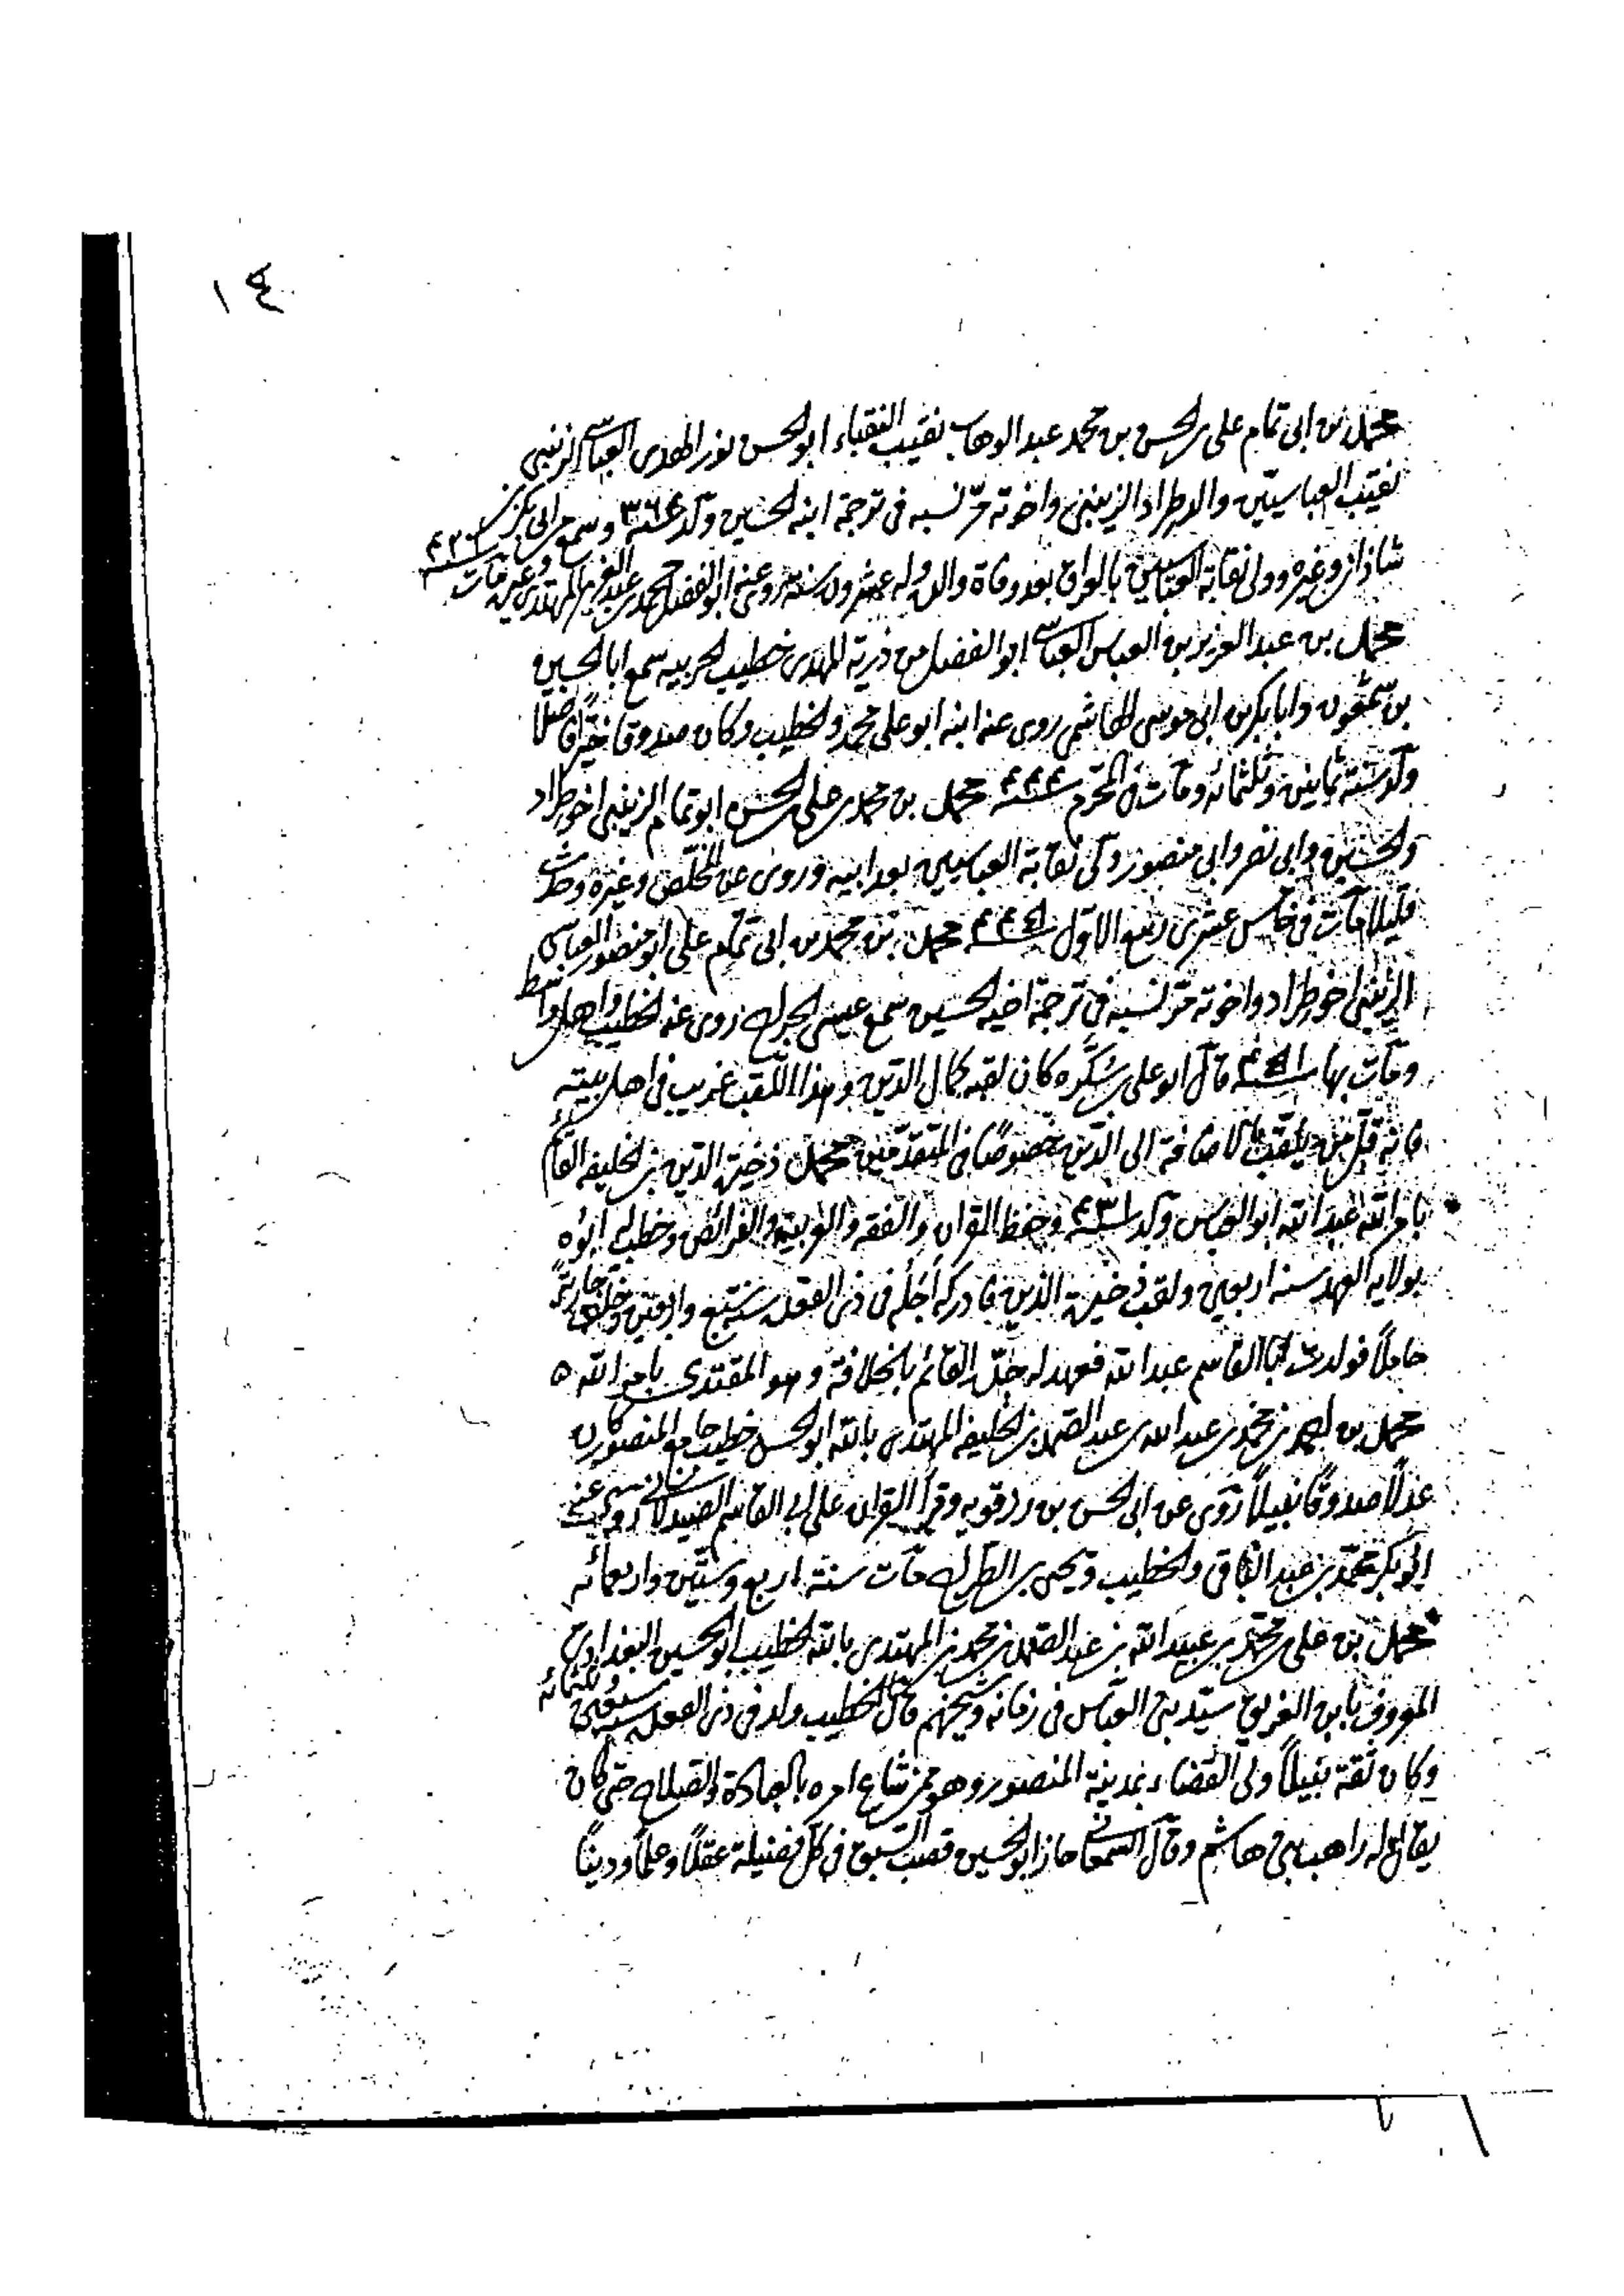 ١٤
محمد بن ابى تمام على بن الحسن بن محمد عبد الوهاب نقيب النقباء ابو الحسن نور الهدى العباسى الزينبى
نقيب العباسيين والد طراد الزينبى واخوته مرّ نسبه فى ترجمة ابنه الحسين ولد سنة ٣٦٤ وسمع من ابى بكر بن
شاذان وغيره وولى نقابة العباسيين بالعراق بعد وفاة والده وله عشرون سنة روى عنه ابو الفضل محمد بن عبد العزيز بن المهتدى وغيره مات سنة ٤٢٦
محمد بن عبد العزيز بن العباس العباسى ابو الفضل من ذرية المهدى خطيب الحربيه سمع ابا الحسين
بن سمعون وابا بكر بن ابى موسى الهاشمى روى عنه ابنه ابو على محمد والخطيب وكان صدوقا خيّرا فاضلاً
ولد سنة ثمانين وثلثمائه ومات فى المحرم سنة ٤٤٤ محمد بن محمد بن على بن الحسن ابو تمام الزينبى اخو طراد
والحسين وابى نصر وابى منصور ولى نقابة العباسيين بعد ابيه وروى عن المخلّص وغيره وحدث
قليلا مات فى خامس عشرى ربيع الاوّل سنة ٤٤٥ محمد بن محمد بن ابى تمام على ابو منصور العباسى
الزينبى اخو طراد واخوته مرّ نسبه فى ترجمة اخيه الحسين سمع عيسى بن الجراح روى عنه الخطيب واهل واسط
ومات بها سنة ٤٥١ قال ابو على بن سُكَّره كان لقبه كمال الدّين وهذا اللّقب غريب فى اهل بيته
فانه قلّ من يلقب بالاضافة الى الدّين خصوصًا فى المتقدّمين محمد ذخيرة الدّين بن الخليفه القائم
بامر الله عبد الله ابو العباس ولد سنة ٤٣١ وحفظ القران والفقه والعربية والفرائض وخطب له ابوه
بولايه العهد سنه اربعين ولقب ذخيرة الدّين فادركه أجَلُه فى ذى القعده سنة سبع واربعين وخلّف جاريةً
حاملاً فولدت ابا القاسم عبد الله فعهد له جدّه القائم بالخلافة وهو المقتدى بامر الله ه
محمد بن احمد بن محمد بن عبد الله بن عبد الصّمد بن الخليفه المهتدى بالله ابو الحسن خطيب جامع المنصور كان
عدلاً صدوقًا نبيلاً روى عن ابى الحسن بن رزقويه وقرأ القران على ابى القاسم الصيدلانى روى عنه
ابو بكر محمّد بن عبد الباقى والخطيب ويحيى بن الطراح مات سنة اربع وستّين واربعمائه
محمد بن على بن محمّد بن عبيد الله بن عبد الصّمد بن محمد بن المهتدى بالله الخطيب ابو الحسين البغدادى
المعروف بابن الغريق سيّد بنى العباس فى زمانه وشيخهم قال الخطيب ولد فى ذى القعده سنه سبعين وثلثمائه
وكان ثقة نبيلاً ولى القضاء بمدينة المنصور وهو ممن شاع امره بالعبادة والصّلاح حتى كان
يقال له راهب بنى هاشم وقال السمعانى حاز ابو الحسين قصب السّبق فى كلّ فضيلة عقلاً وعلماً ودينًا